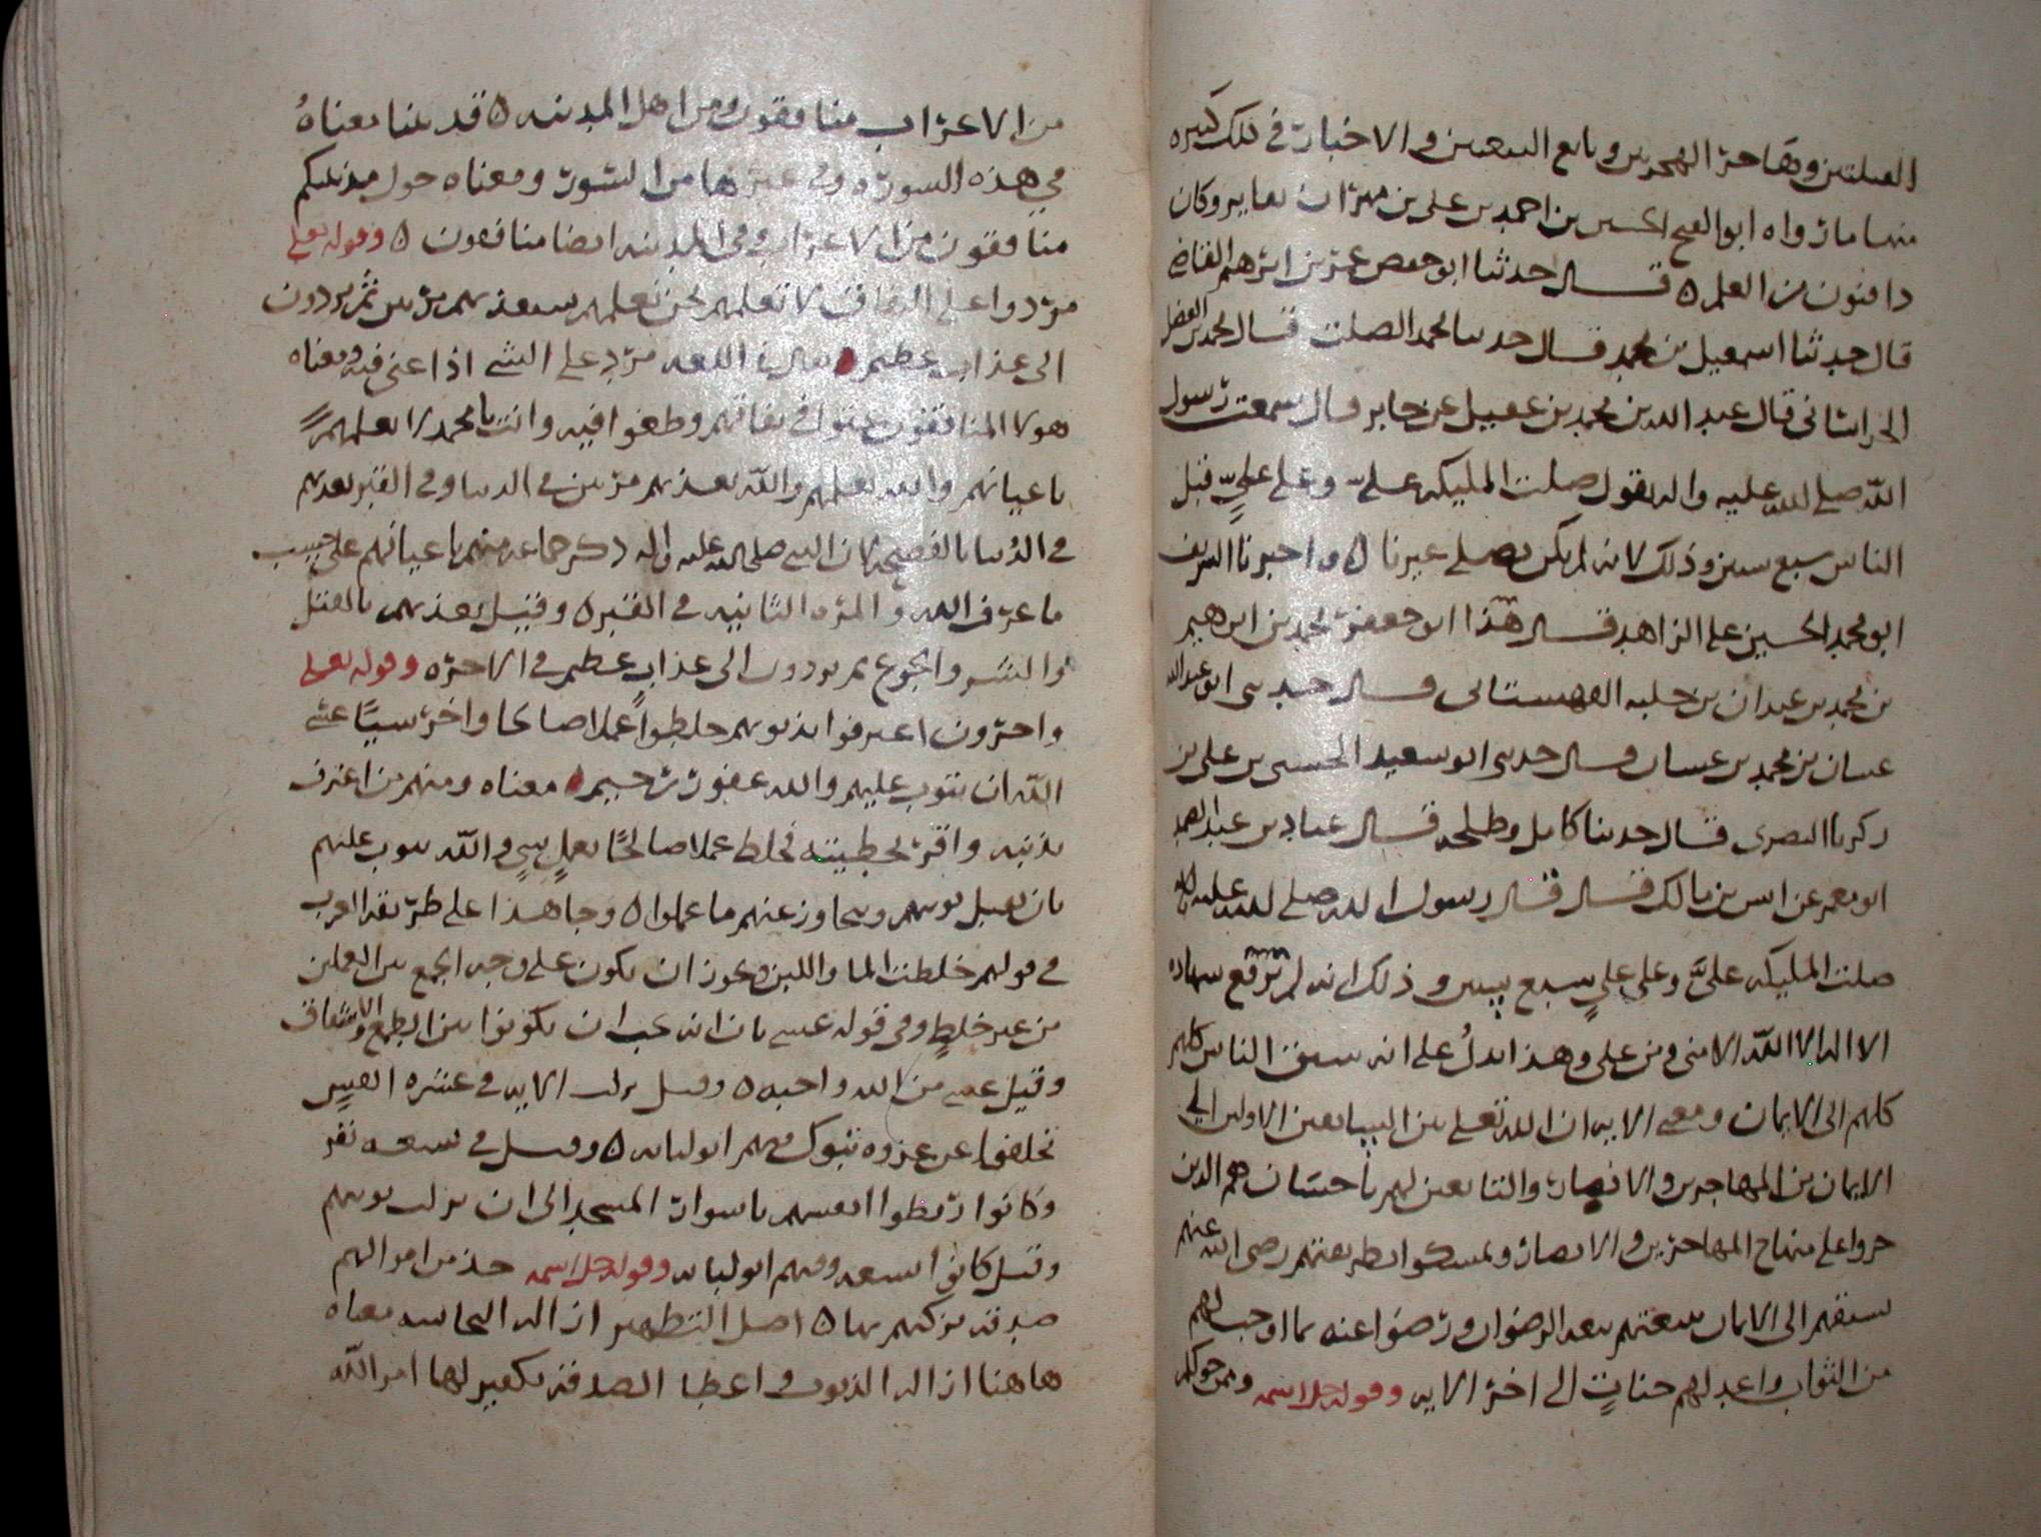 القبلتين وهاجر الهجرتين وبايع البيعتين والاخبار في ذلك كثيره
منها ما رواه ابو الفتح الحسين بن احمد بن علي بن مهران وكان
ذا فنون من العلم ٥ قال حدثنا ابو حفص عمر بن ابرهيم القاضي
قال حدثنا اسمعيل بن محمد قال حدثنا محمد الصلت قال محمد بن الفضل
الخراساني قال عبد الله بن محمد بن عقيل عن جابر قال سمعت رسول
الله صلى الله عليه واله يقول صلت المليكه عليّ وعلى عليٍّ قبل
الناس سبع سنين وذلك لانه لم يكن يصلي غيرنا ٥ واخبرنا الشريف
ابو محمد الحسين علي الزاهد قال هذا ابو جعفر محمد بن ابرهيم
بن محمد بن عبدان بن القهستاني قال حدثني ابو عبد الله
غسان بن محمد بن غسان قال حدثني ابو سعيد الحسن بن علي بن
زكريا البصري قال حدثنا كامل وطلحه قال عباد بن عبد الصمد
ابو معمر عن انس بن مالك قال قال رسول الله صلى الله عليه واله
صلت المليكه عليّ وعلى عليٍ سبع سنين وذلك انه لم ترفع شهاده
الا اله الا الله الا مني ومن علي وهذا يدلُ على انه سبق الناس كلهم
كلهم الى الايمان ومعنى الايه ان الله تعلى بين السابقين الاولين الى
الايمان من المهاجرين والانصار والتابعين لهم باحسان هم الذين
جروا على منهاج المهاجرين والانصار وتمسكوا بطريقتهم رضي الله عنهم
لسبقهم الى الايمان بيعتهم بيعه الرضوان ورضوا عنه بما اوجب لهم
من الثواب واعد لهم جناتٍ الى اخر الايه وقوله جل اسمه وممن حولكم
من الاعراب منافقون ومن اهل المدينه ٥ قد بينا معناهُ
في هذه السوره وفي غيرها من السُور ومعناه حول مدينتكم
منافقون من الاعراب وفي المدينه ايضا منافقون ٥ وقوله تعلى
مردوا على النفاق لا تعلمهم نحن نعلمهم سنعذبهم مرتين ثم يردون
الى عذاب عظيم ٥ يقال في اللغه مرد على الشي اذا عتى فيه ومعناه
هولا المنافقون عتوا في نفاقهم وطغوا فيه وانت يا محمد لا تعلمهم
باعيانهم والله يعلمهم والله يعذبهم مرتين في الدنيا وفي القبر يعذبهم
في الدُنيا بالفضيحه لان النبي صلى الله عليه واله ذكر جماعه منهم باعيانهم على حسب
ما عرفه الله والمره الثانيه في القبر ٥ وقيل يعذبهم بالقتل
والسر والجوع ثم يردون الى عذاب عظيم في الاخره وقوله تعلى
واخرون اعترفوا بذنوبهم خلطوا عملا صالحا واخر سييًا عسى
الله ان يتوب عليهم والله غفور رحيم ٥ معناه ومنهم من اعترف
بذنبه واقر بخطيته فخلط عملا صالحًا بعملٍ سيٍ والله يتوب عليهم
بان يقبل توبتهم ويتجاوز عنهم ما عملوا ٥ وجا هذا على طريقه العرب
في قولهم خلطت الما واللبن ويجوز ان يكون على وجه الجمع بين العملين
من غير خلطٍ وفي قوله عسى بان انه يجب ان يكونوا بين الطمع والاشفاق
وقيل عسى من الله واجبه ٥ وقيل نزلت الايه في عشره انفس
تخلفوا عن غزوه تبوك فيهم ابو لبابه ٥ وقيل في سبعه نفر
وكانوا ربطوا انفسهم باسوار المسجد الى ان نزلت توبتهم
وقيل كانوا تسعه وفيهم ابو لبابه وقوله جل اسمه خذ من اموالهم
صدقه تزكيهم بها ٥ اصل التطهير ازاله النجاسه معناه
هاهنا ازاله الذنوب في اعطا الصدقه تكفير لها امر الله